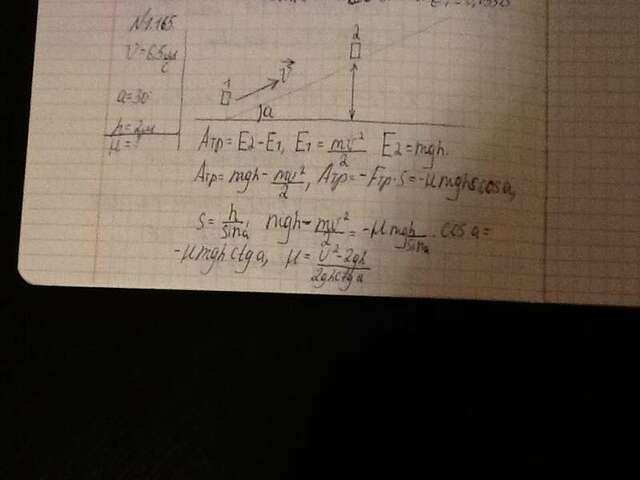 N 1.165
υ=6,5 м/с
a=30°
h=2 м
μ=?
1
υ⃗
a
2
Aтр=E2-E1, E1=mv²/2 E2=mgh.
Aтр=mgh-mv²/2, Aтр=-Fтр·S=-μmgs cos a,
S=h/sin a, mgh-mv²/2=-μmgh/sin a · cos a=
-μmgh ctg a, μ=υ²-2gh/2gh ctg a